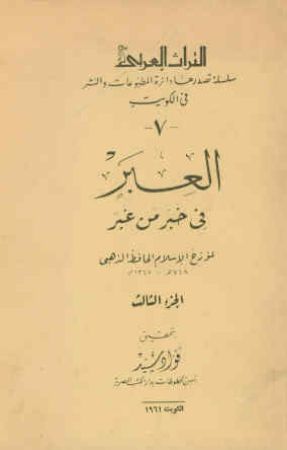 التراث العربي
سلسلة تصدرها دائرة المطبوعات والنشر
في الكويت
-٧-
العِبَر
في خبر من غبر
لمؤرخ الإسلام الحافظ الذهبي
٧٤٨هـ - ١٣٤٧م
الجزء الثالث
بتحقيق
فؤاد سيد
أمين المخطوطات بدار الكتب المصرية
الكويت ١٩٦١